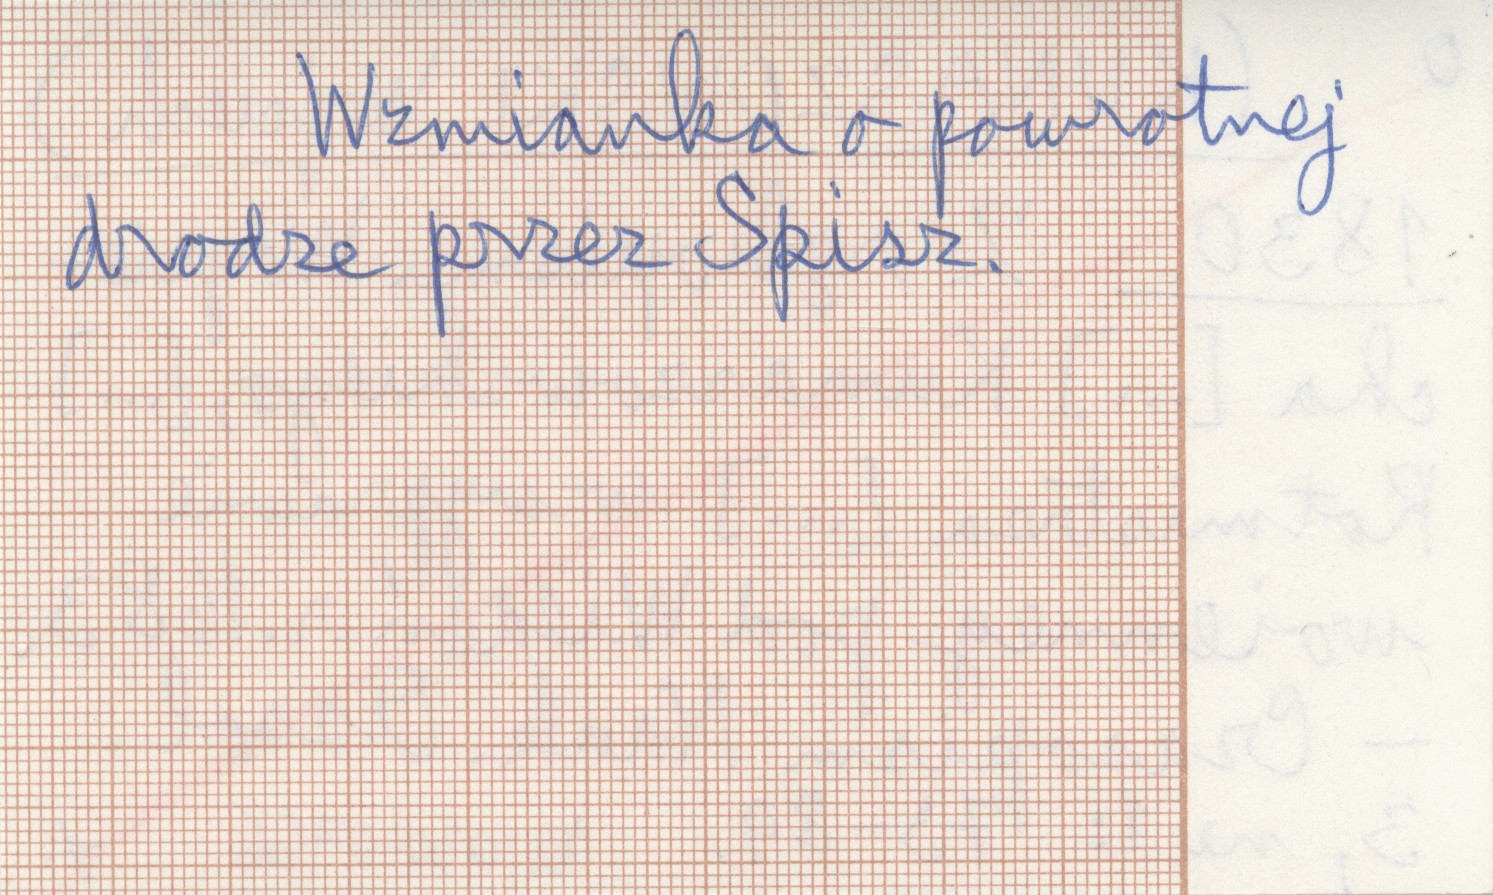 Wzmianka o powrotnej
drodze przez Spisz.